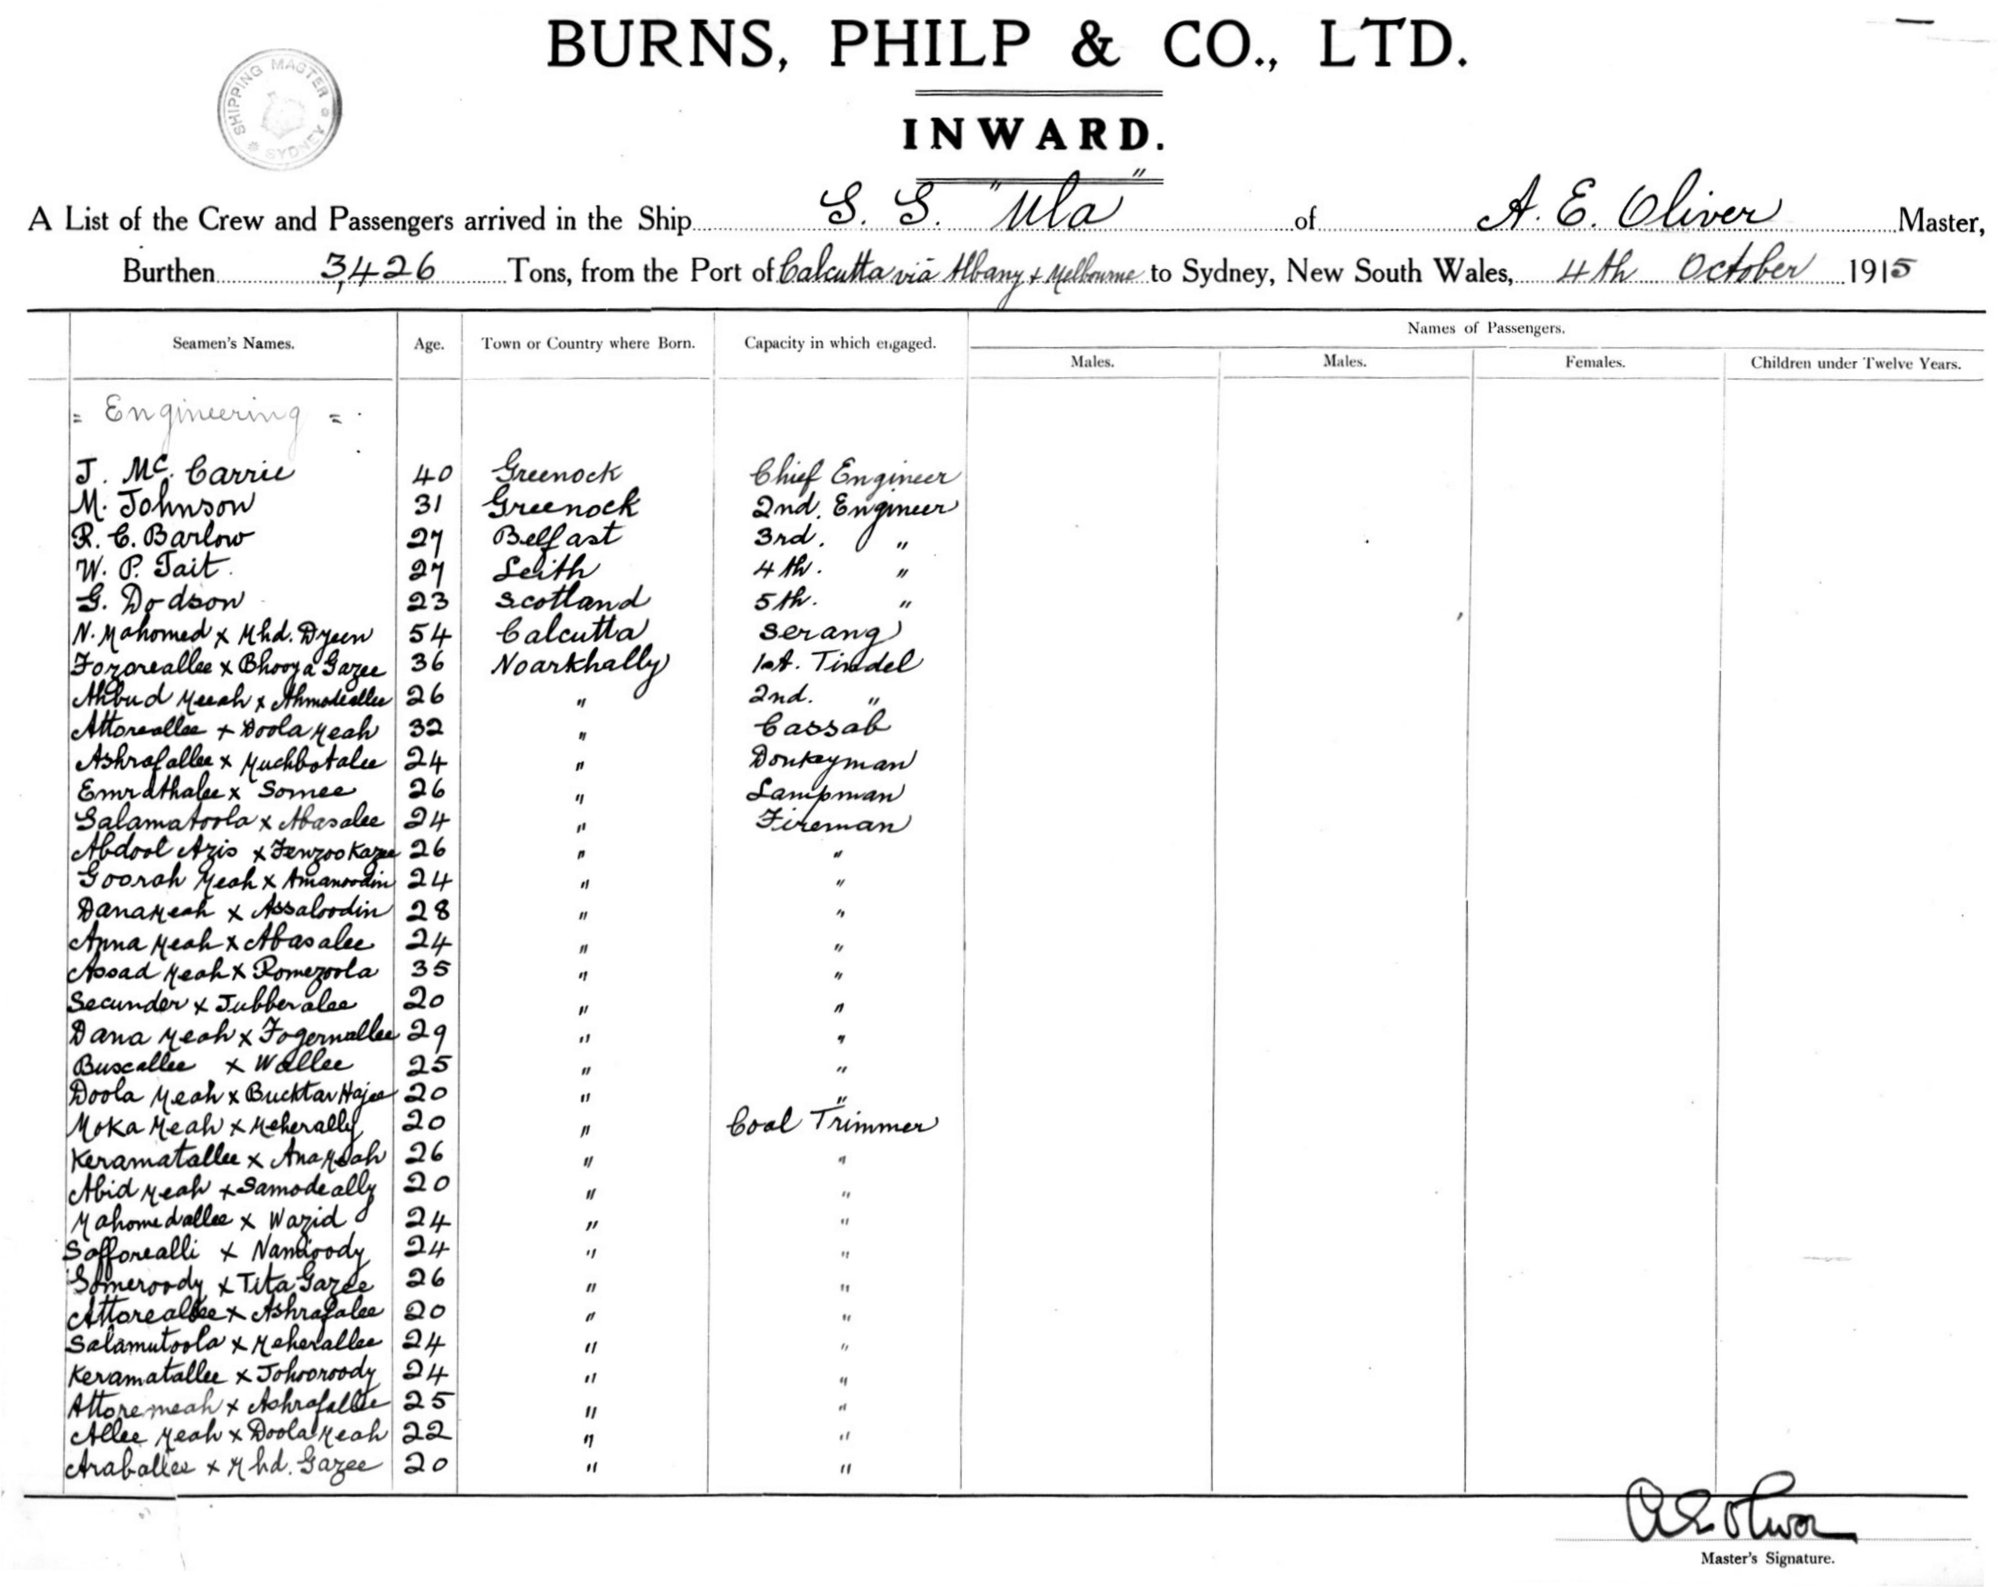 BURNS, PHILP & CO., LTD.
SHIPPING MASTER
SYDNEY
INWARD.
A List of the Crew and Passengers arrived in the Ship S. S. "Ula" of A. E. Oliver Master,
Burthen 3,426 Tons, from the Port of Calcutta via Albany & Melbourne to Sydney, New South Wales, 4th October 1915
Names of Passengers.
Seamen's Names. Age. Town or Country where Born. Capacity in which engaged. Males. Males. Females. Children under Twelve Years.
= Engineering =
J. Mc. Carrie 40 Greenock Chief Engineer
M. Johnson 31 Greenock 2nd. Engineer
R. C. Barlow 27 Belfast 3rd. "
W. P. Tait. 27 Leith 4th. "
G. Dodson 23 Scotland 5th. "
N. Mahomed x Mhd. Dyeen 54 Calcutta Serang
Fozoreallee x Bhooya Gazee 36 Noarkhally 1st. Tindel
Ahbud Meeah x Ahmodeallee 26 " 2nd. "
Attoreallee x Doola Meah 32 " Cassab
Ashrafallee x Muchbotalee 24 " Donkeyman
Emrathalee x Somee 26 " Lampman
Salamatoola x Abasalee 24 " Fireman
Abdool Azis x Fenzoo Kazee 26 " "
Goorah Meah x Amanoodin 24 " "
Dana Meah x Assaloodin 28 " "
Anna Meah x Abasalee 24 " "
Assad Meah x Romezoola 35 " "
Secunder x Jubberalee 20 " "
Dana Meah x Fogernallee 29 " "
Buscallee x Wallee 25 " "
Doola Meah x Bucktar Hajee 20 " "
Moka Meah x Meherally 20 " Coal Trimmer
Keramatallee x Ana Meah 26 " "
Abid Meah x Samodeally 20 " "
Mahomedallee x Wazid 24 " "
Sofforealli x Namoody 24 " "
Someroody x Tita Gazee 26 " "
Attoreallee x Ashrafalee 20 " "
Salamutoola x Meherallee 24 " "
Keramatallee x Johooroody 24 " "
Attoremeah x Ashrafallee 25 " "
Allee Meah x Doola Meah 22 " "
Araballee x Mhd. Gazee 20 " "
A E Oliver
Master's Signature.